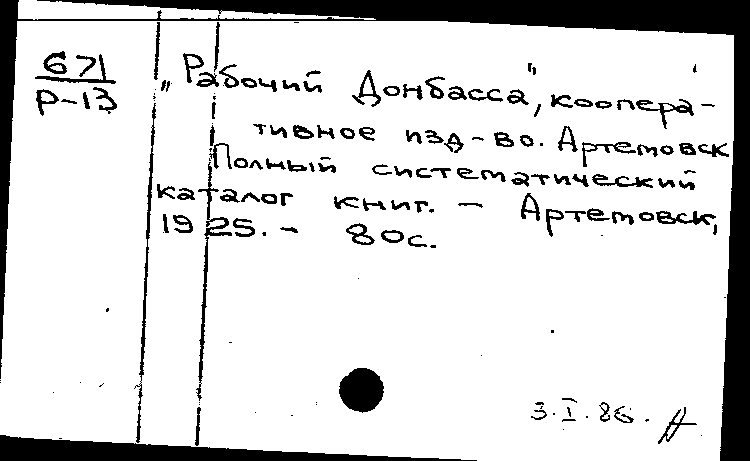 671
Р-13
„Рабочий Донбасса", коопера-
тивное изд-во. Артемовск
Полный систематический
каталог книг. - Артемовск,
1925. - 80с.
3.I.86.